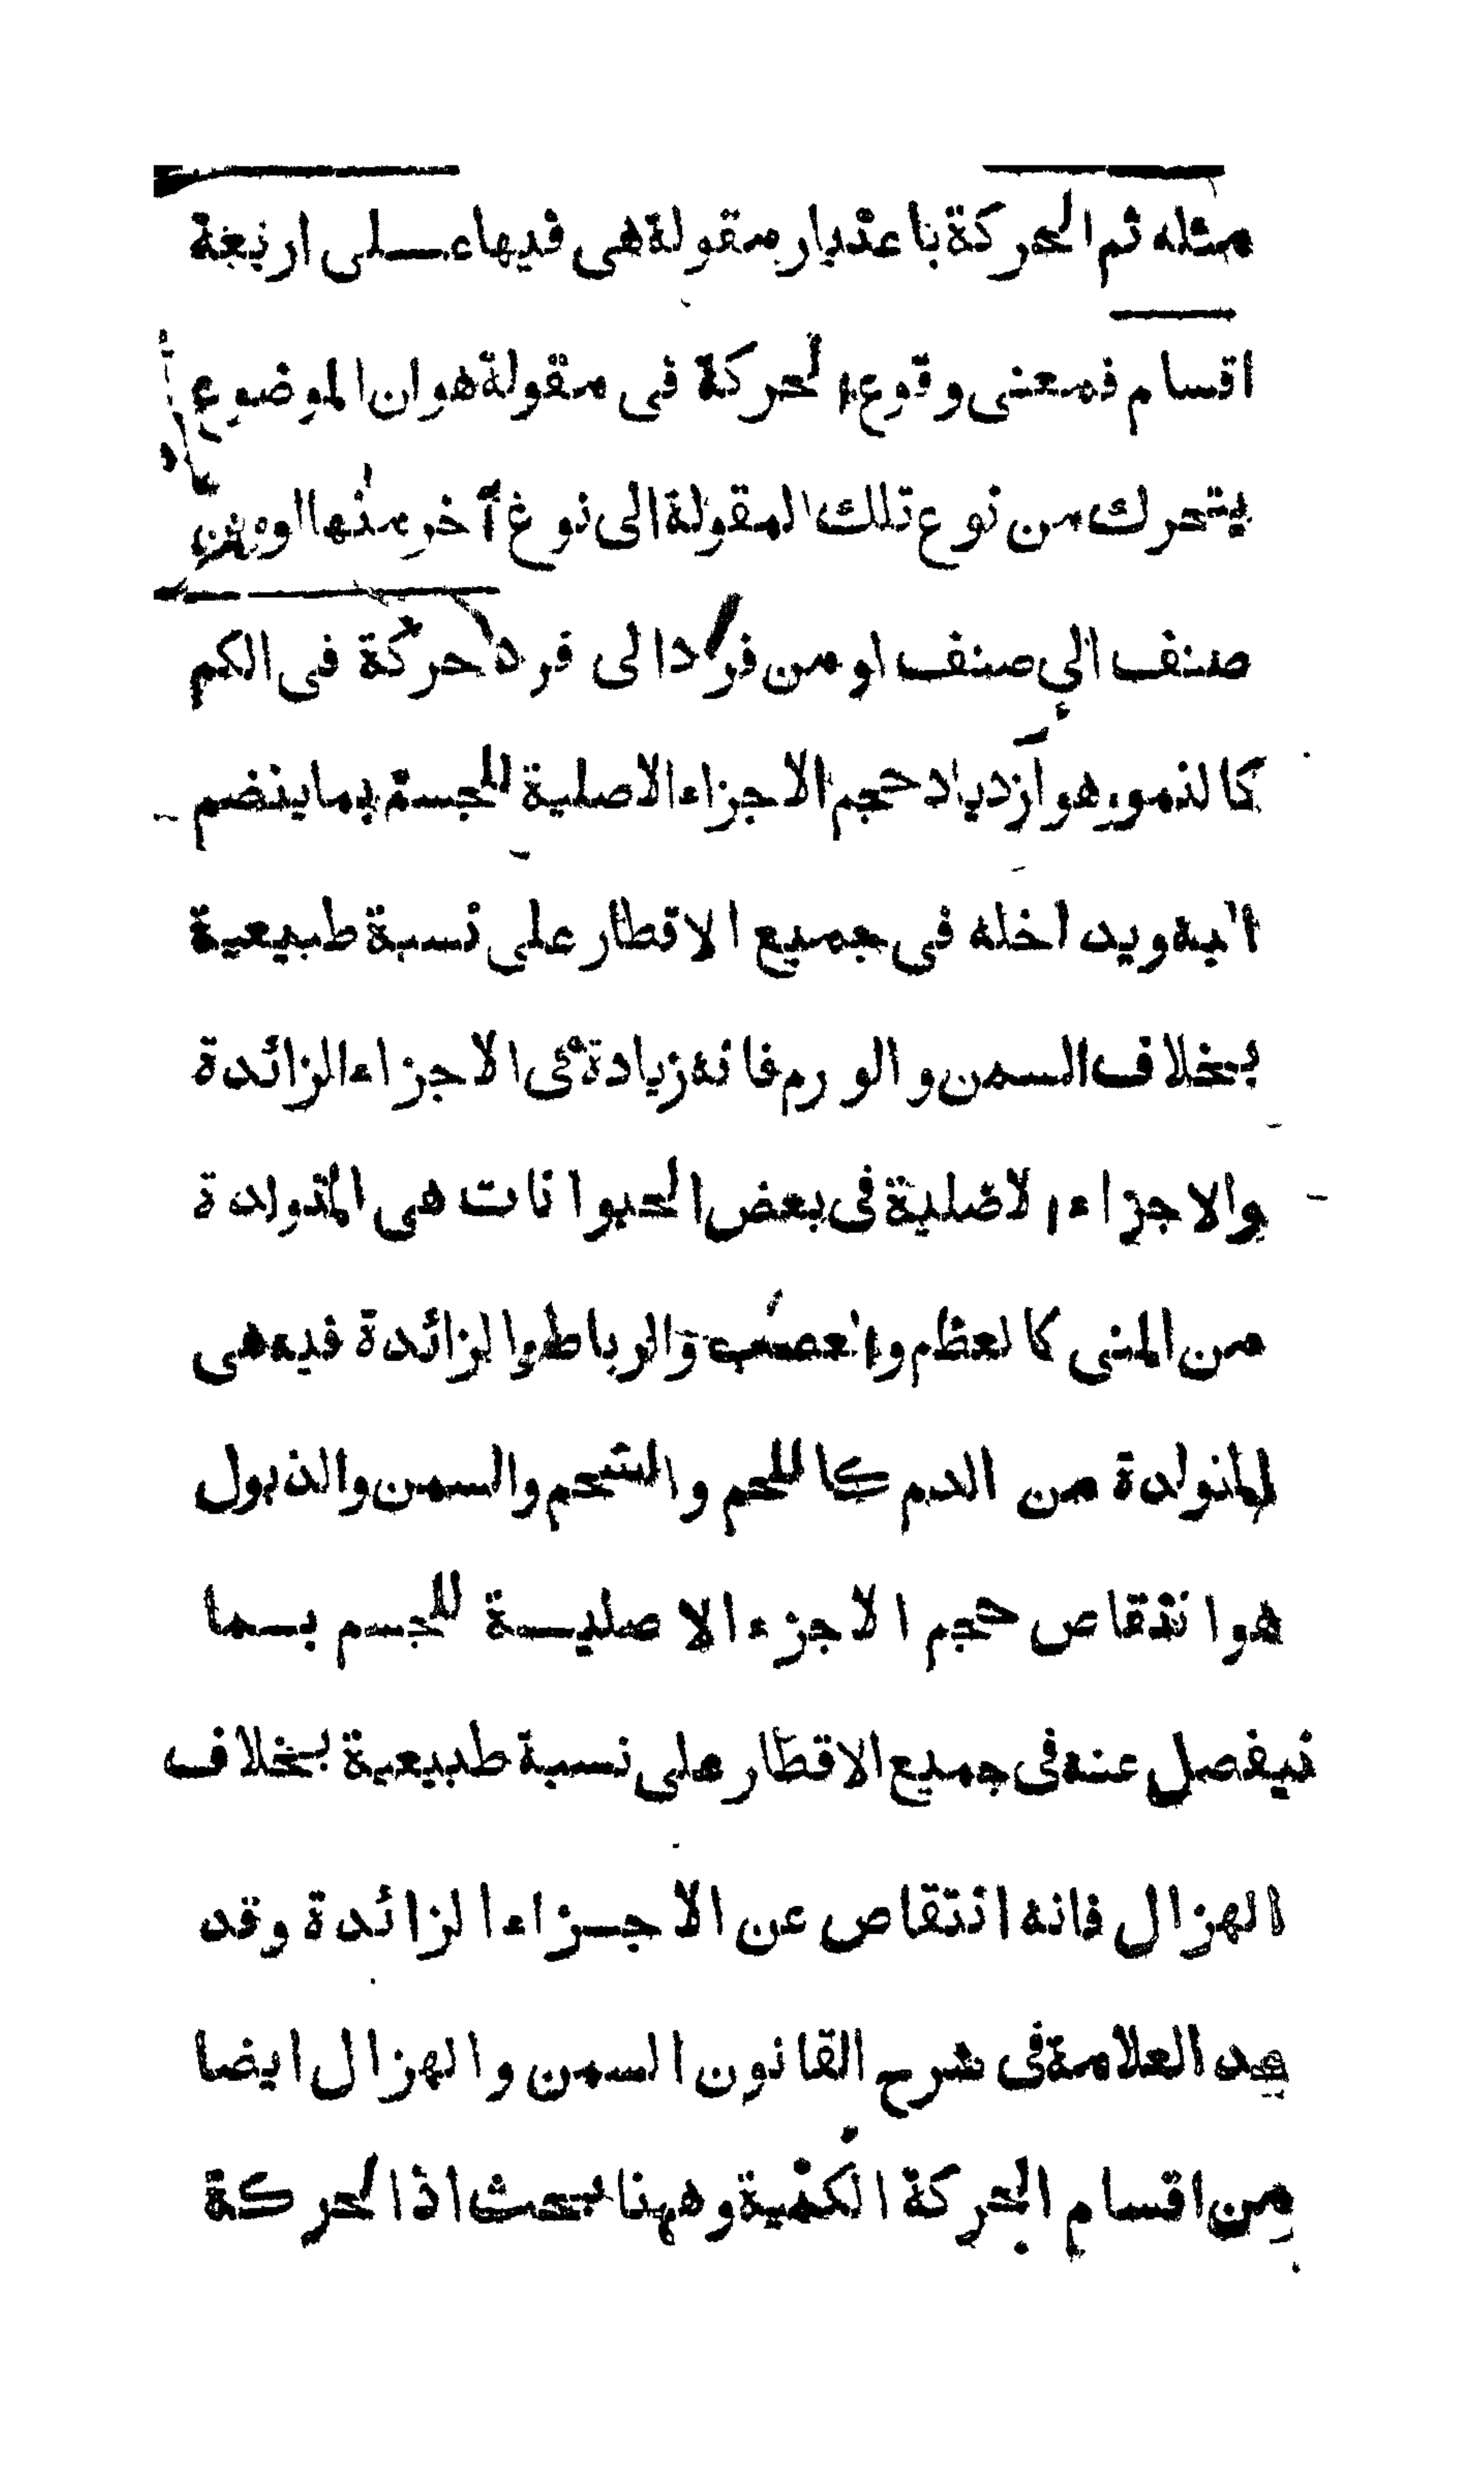 مثله ثم الحركة باعتبار مقولة هى فيها على اربعة
اقسام فمعنى وقوع الحركة فى مقولة هو ان الموضوع
يتحرك من نوع تلك المقولة الى نوع آخر منها او من
صنف الى صنف او من فرد الى فرد حركة فى الكم
كالنمو وهو ازدياد حجم الاجزاء الاصلية للجسم بما ينضم
اليه ويداخله فى جميع الاقطار على نسبة طبيعية
بخلاف السمن والورم فانه زيادة فى الاجزاء الزائدة
والاجزاء الاصلية فى بعض الحيوانات هى المتولدة
من المنى كالعظم والعصب والرباط والزائدة فيه هى
المتولدة من الدم كاللحم والشحم والسمن والذبول
هو انتقاص حجم الاجزء الاصلية للجسم بما
ينفصل عنه فى جميع الاقطار على نسبة طبيعية بخلاف
الهزال فانه انتقاص عن الاجزاء الزائدة وقد
عد العلامة فى شرح القانون السمن والهزال ايضا
من اقسام الحركة الكمية وههنا بحث اذا الحركة